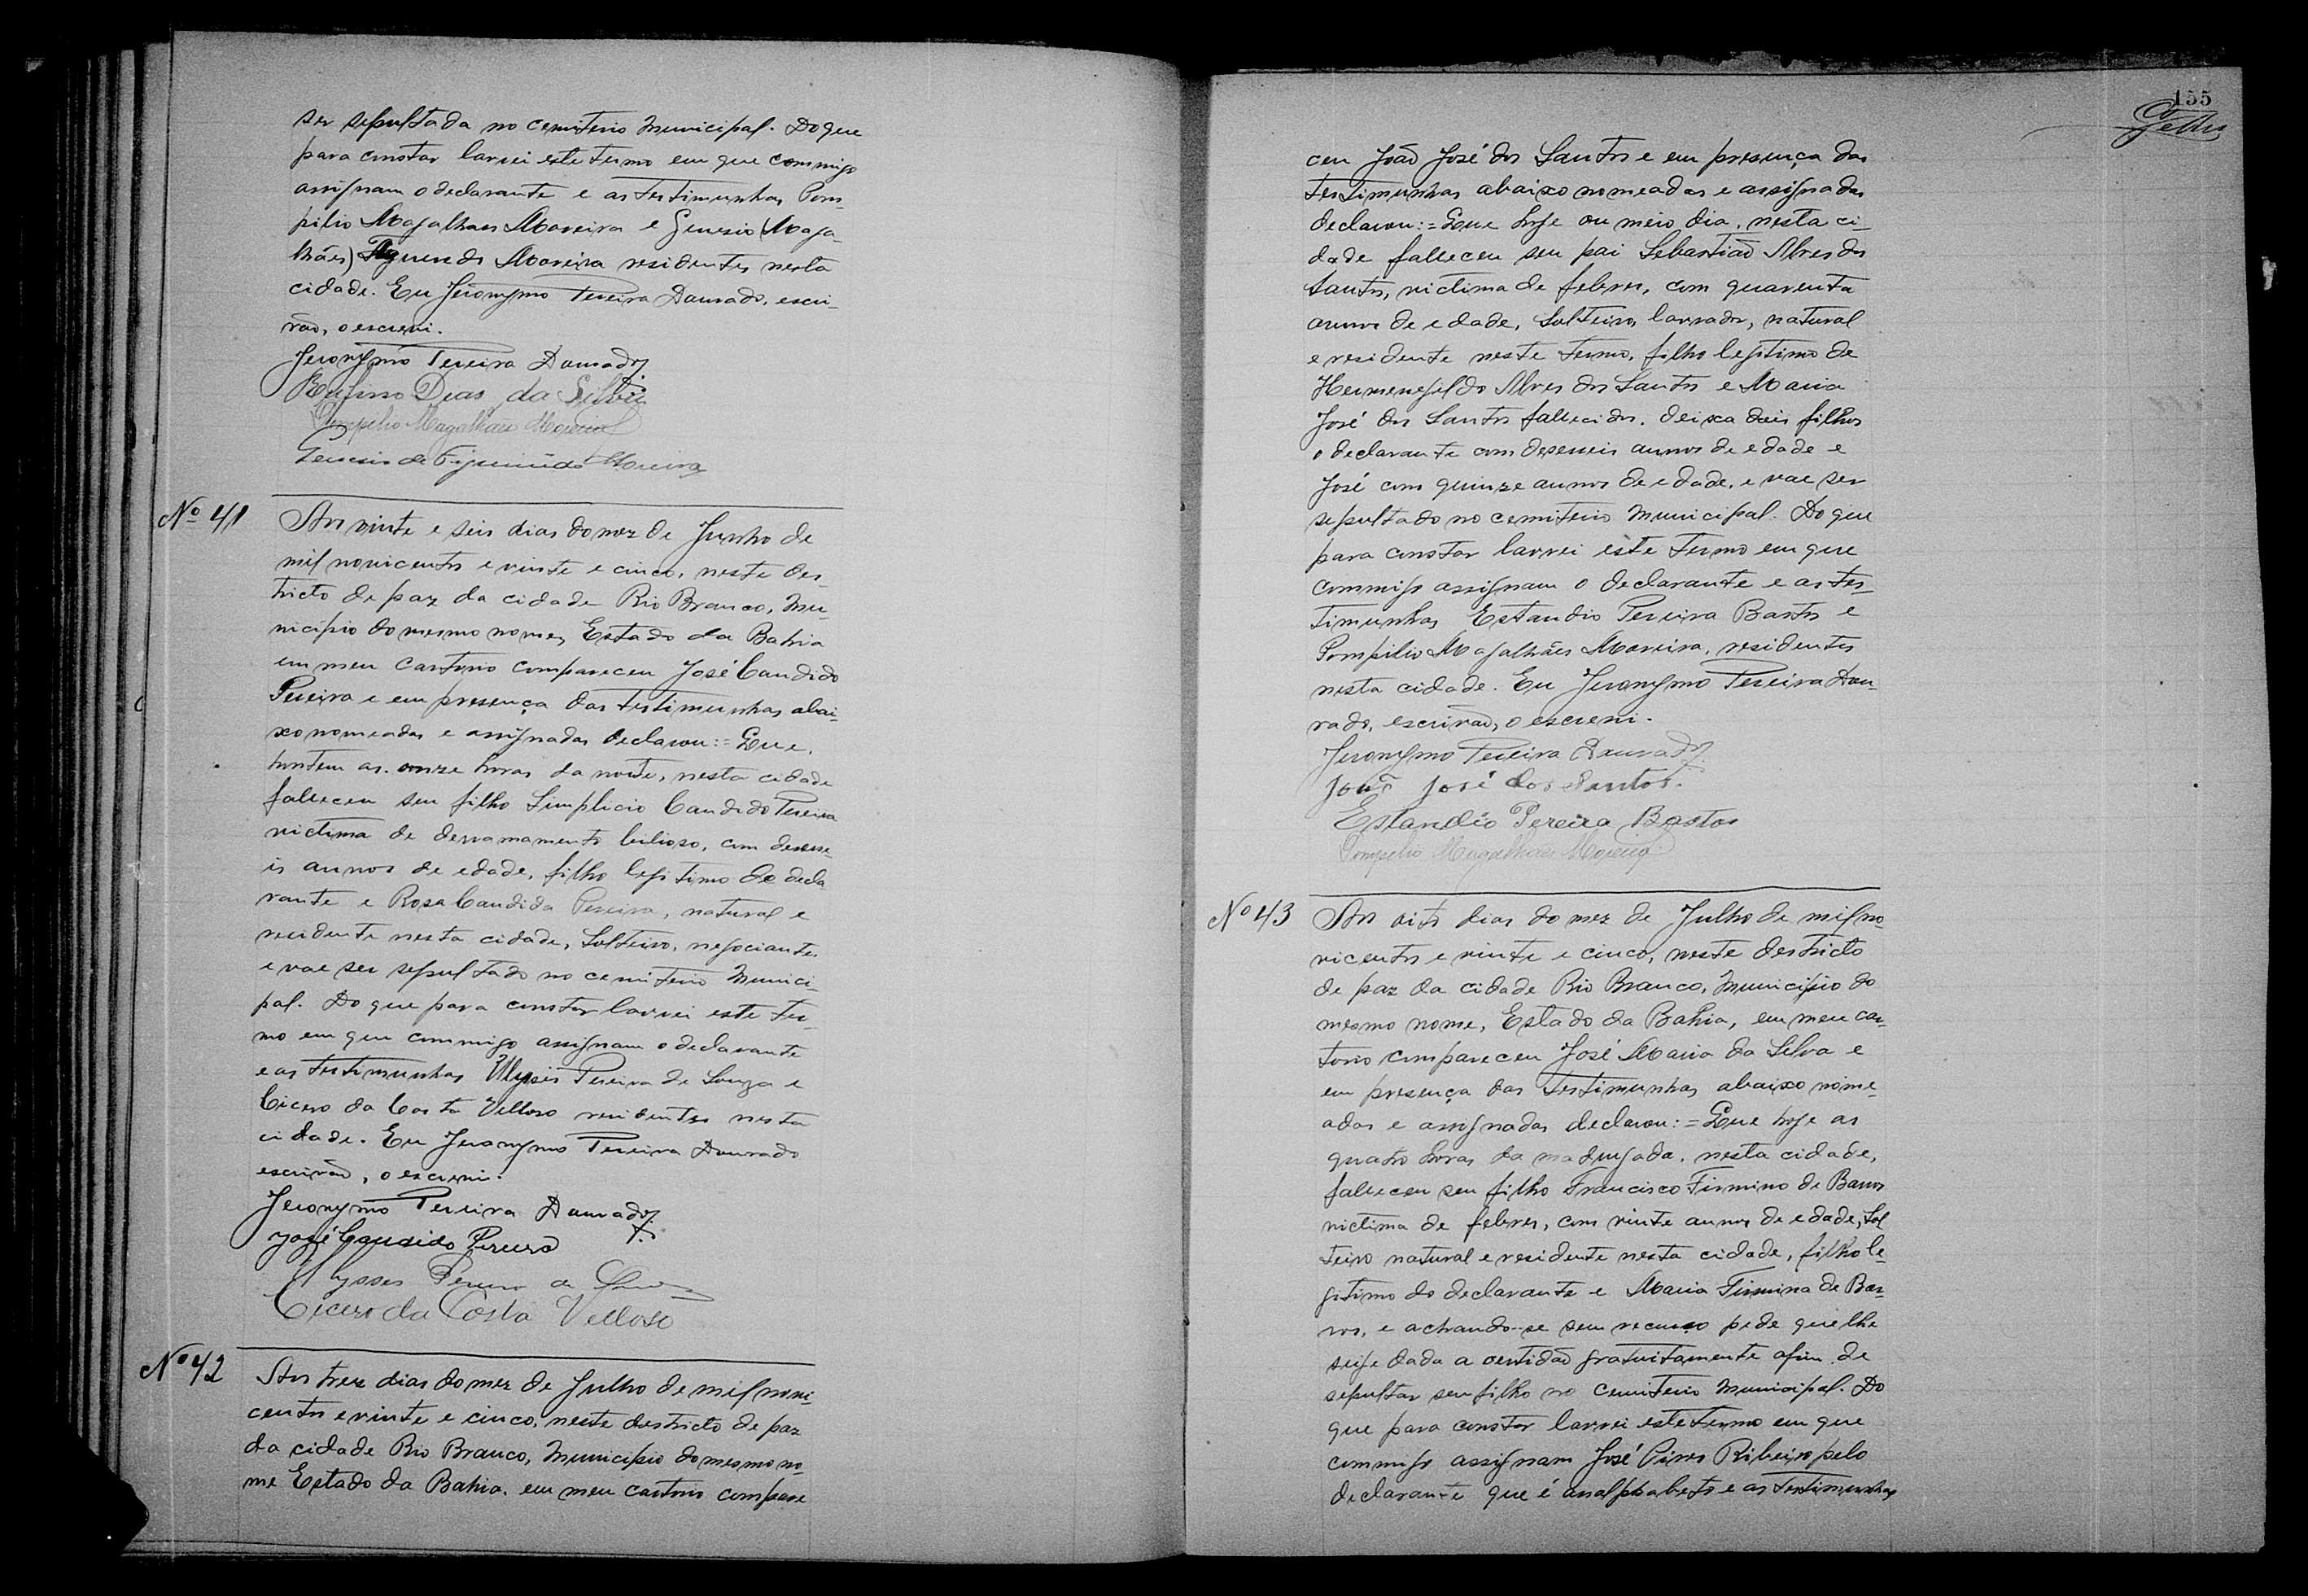 ser sepultada no cemiterio Municipal. Do que
para constar lavrei este termo em que commigo
assignam o declarante e as testimunhas Pom-
pilio Magalhaes Moreira e Genesio (Maga-
lhães) Figueredo Moreira residentes nesta
cidade. Eu Jeronymo Pereira Dourado, escri-
vão, o escrevi.
Jeronymo Pereira Dourado
Rufino Dias da Silva
Pompilio Magalhães Moreira
Genesio de Figueirêdo Moreira
Nº 41
Aos vinte e seis dias do mez de Junho de
mil novicentos e vinte e cinco, neste des-
tricto de paz da cidade Rio Branco, Mu-
nicipio do mesmo nome, Estado da Bahia
em meu cartorio compareceu José Candido
Pereira e em presença das testimunhas abai-
xo nomeadas e assignadas declarou:= Que,
hontem as onze horas da noite, nesta cidade
falleceu seu filho Simplicio Candido Pereira
victima de derramamento bilioso, com desese-
is annos de edade, filho legitimo do decla
rante e Rosa Candida Pereira, natural e
residente nesta cidade, Solteiro, negociante,
e vae ser sepultado no cemiterio Munici-
pal. Do que para constar lavrei este ter-
mo em que commigo assignam o declarante
e as testimunhas Ulysses Pereira de Souza e
Cicero da Costa Velloso residentes nesta
cidade. Eu Jeronymo Pereira Dourado
escrivão, o escrevi.
Jeronymo Pereira Dourado
José Candido Pereira
Ulysses Pereira de Souza
Cicero da Costa Velloso
Nº 42
Aos trez dias do mez de Julho de mil novi-
centos e vinte e cinco, neste destricto de paz
da cidade Rio Branco, Municipio do mesmo no-
me Estado da Bahia, em meu cartorio compare
155
ceu João José dos Santos e em presença das
testimunhas abaixo nomeadas e assignadas
declarou:= Que hoje ou meio dia, nesta ci-
dade falleceu seu pai Sebastião Alves dos
Santos, victima de febres, com quarenta
annos de edade, Solteiro, lavrador, natural
e residente neste termo, filho legitimo de
Hermenegildo Alves dos Santos e Maria
José dos Santos fallecidos. deixa dois filhos
o declarante com deseseis annos de edade e
José com quinze annos de edade, e vae ser
sepultado no cemiterio Municipal. Do que
para constar lavrei este termo em que
commigo assignam o declarante e as tes-
timunhas Estandio Pereira Bastos e
Pompilio Magalhães Moreira, residentes
nesta cidade. Eu Jeronymo Pereira Dou-
rado, escrivão, o escrevi.
Jeronymo Pereira Dourado
João José dos Santos.
Estandio Pereira Bastos
Pompilio Magalhães Moreira
Nº 43
Aos oito dias do mez de Julho de mil no-
vicentos e vinte e cinco, neste destricto
de paz da cidade Rio Branco, Municipio do
mesmo nome, Estado da Bahia, em meu car-
torio compareceu José Maria da Silva e
em presença das testimunhas abaixo nome-
adas e assignadas declarou:= Que hoje as
quatro horas da madrugada, nesta cidade,
falleceu seu filho Francisco Firmino de Barros
victima de febres, com vinte annos de edade, Sol
teiro natural e residente nesta cidade, filho le-
gitimo do declarante e Maria Firmina de Bar-
ros, e achando-se sem recurso pede que lhe
seije dada a certidão gratuitamente afim de
sepultar seu filho no Cemiterio Municipal. Do
que para constar lavrei este termo em que
commigo assignam José Pires Ribeiro pelo
declarante que é analphabeto e as testimunhas